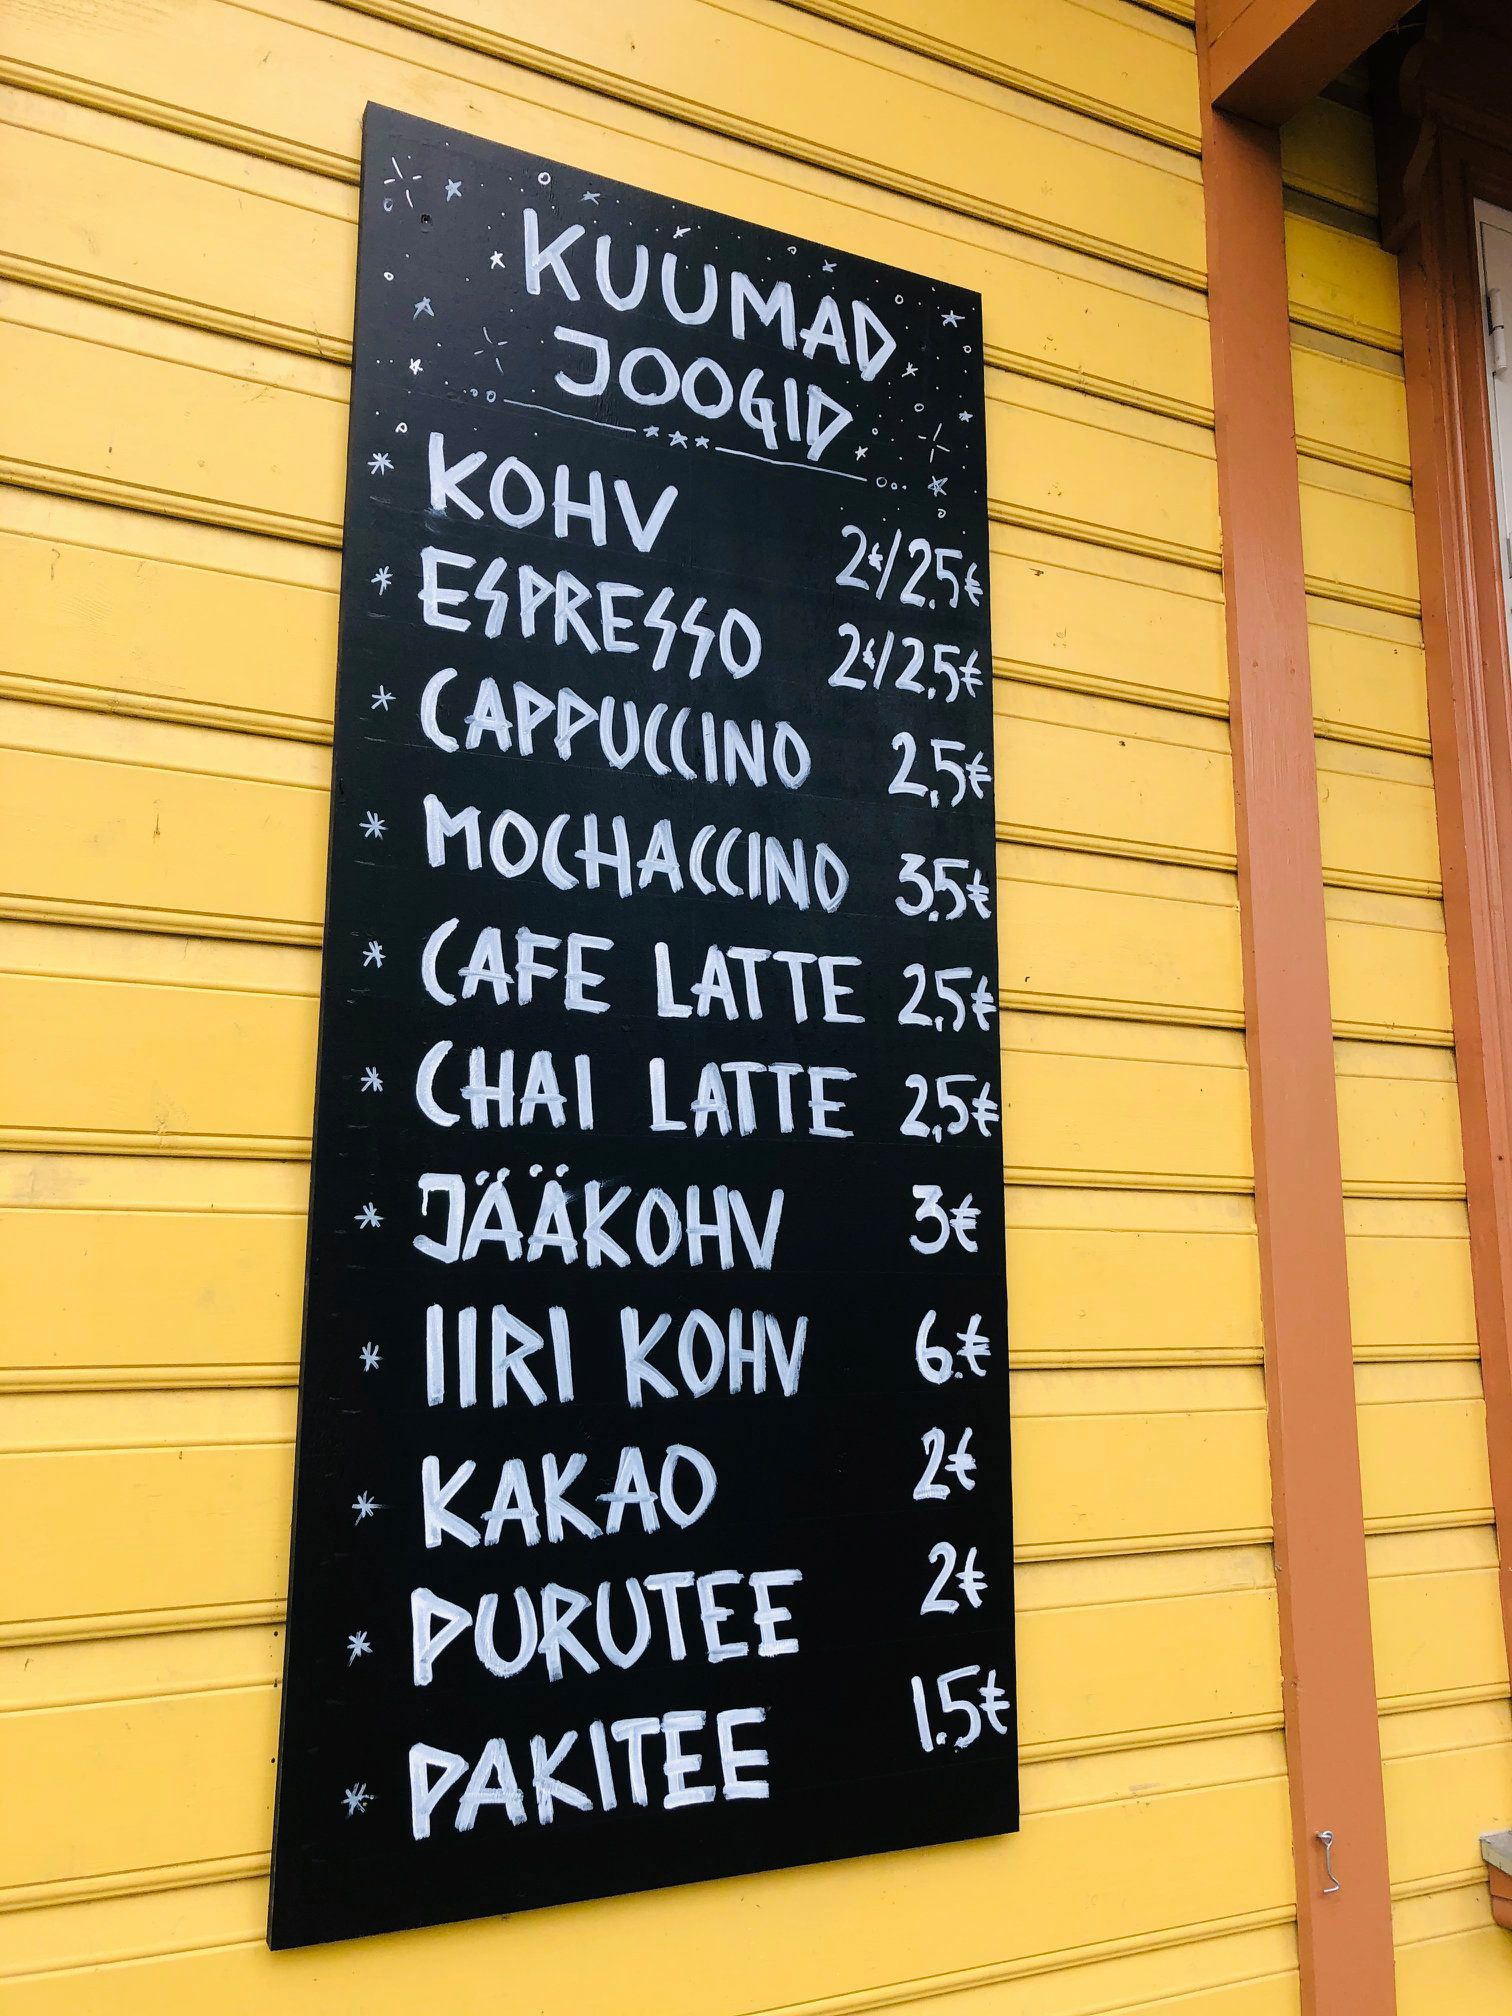 KUUMAD
JOOGID
KOHV 2€/2.5€
ESPRESSO 2€/2.5€
CAPPUCCINO 2,5€
MOCHACCINO 3,5€
CAFE LATTE 2,5€
CHAI LATTE 2,5€
JÄÄKOHV 3€
IIRI KOHV 6.€
KAKAO 2€
PURUTEE 2€
PAKITEE 1.5€